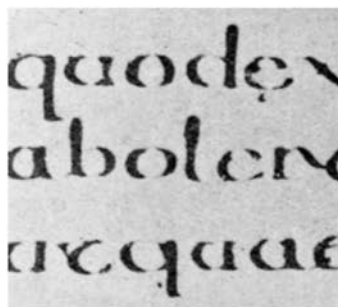 quodęx
abolere
arcquae